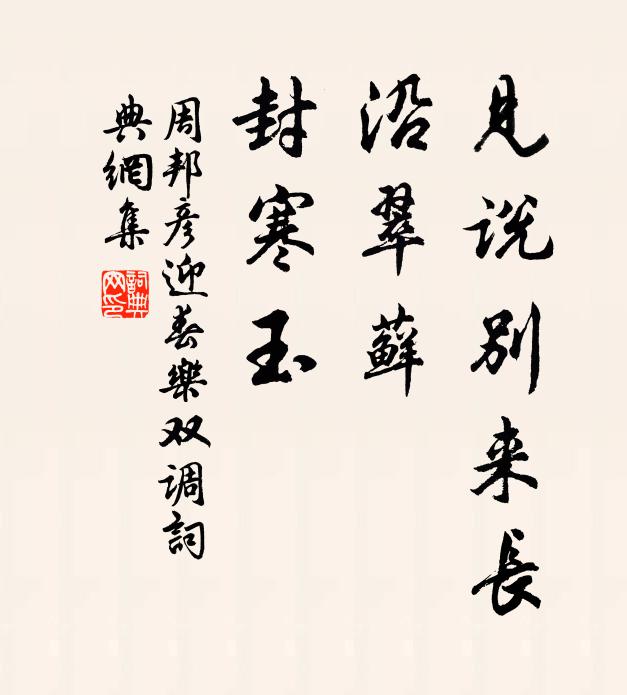 見说别来長
沿翠蘚
封寒玉
周邦彦迎春樂双调詞
典網集
詞典网印